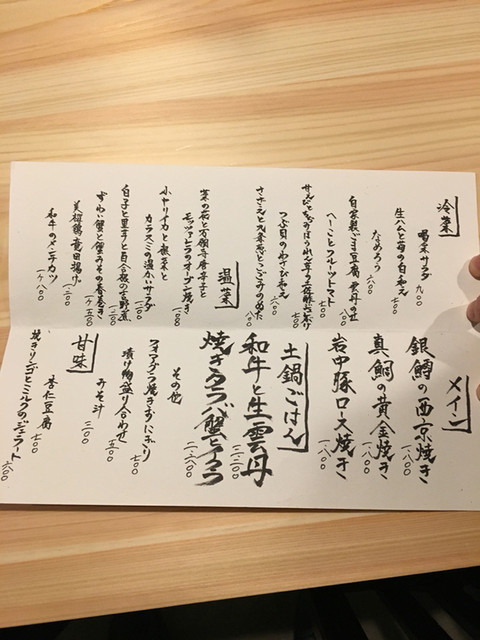 冷菜
喝采サラダ 九〇〇
生ハムと苺の白和え 七〇〇
なめろう 六〇〇
自家製ごま豆腐 雲丹のせ 八〇〇
へーことフルーツトマト 七〇〇
つぶ貝のわさび和え 六〇〇
さざえと九条葱とこごみのぬた 八〇〇
温菜
菜の花と万願寺唐辛子と
モッツァレラのオーブン焼き 一、〇〇〇
小ヤリイカと根菜と
カラスミの温かいサラダ 一、二〇〇
白子と里芋と百合根の吉野煮 一、二〇〇
ずわい蟹と蟹みその春巻き 一ケ 五〇〇
美桜鶏竜田揚げ 一、二〇〇
和牛のメンチカツ 一ケ 八〇〇
メイン
銀鱈の西京焼き 一、八〇〇
真鯛の黄金焼き 一、八〇〇
岩中豚ロース焼き 一、八〇〇
土鍋ごはん
和牛と生雲丹 三、二〇〇
焼きタラバ蟹とイクラ 二、二〇〇
その他
フォアグラ焼きおにぎり 七〇〇
漬け物盛り合わせ 五〇〇
みそ汁 三〇〇
甘味
杏仁豆腐 七〇〇
焼きリンゴとミルクのジェラート 六〇〇